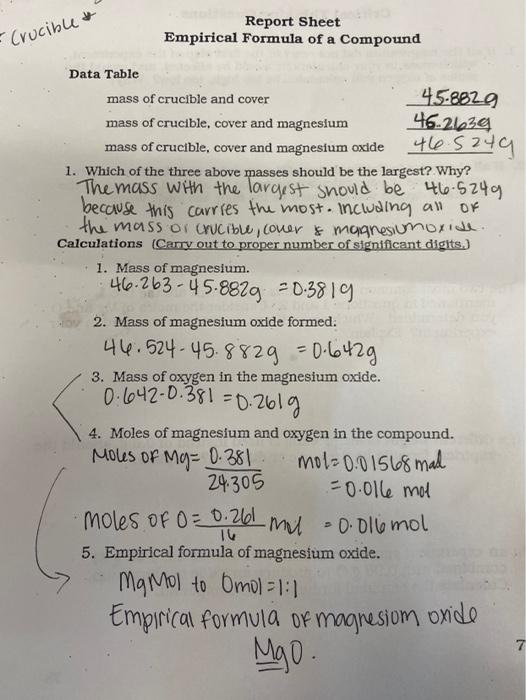 Crucible
Report Sheet
Empirical Formula of a Compound
Data Table
mass of crucible and cover 45.882g
mass of crucible, cover and magnesium 46.263g
mass of crucible, cover and magnesium oxide 46.524g
1. Which of the three above masses should be the largest? Why?
The mass with the largest should be 46.524g
because this carries the most. Including all of
the mass of crucible, cover & magnesium oxide.
Calculations (Carry out to proper number of significant digits.)
1. Mass of magnesium.
46.263-45.882g = 0.381g
2. Mass of magnesium oxide formed:
46.524-45.882g = 0.642g
3. Mass of oxygen in the magnesium oxide.
0.642-0.381 = 0.261g
4. Moles of magnesium and oxygen in the compound.
Moles of Mg= 0.381 mol= 0.01568 mol
24.305 = 0.016 mol
moles of O = 0.261 mol = 0.016 mol
16
5. Empirical formula of magnesium oxide.
Mg Mol to O mol = 1:1
Empirical formula of magnesiom oxide
MgO.
7